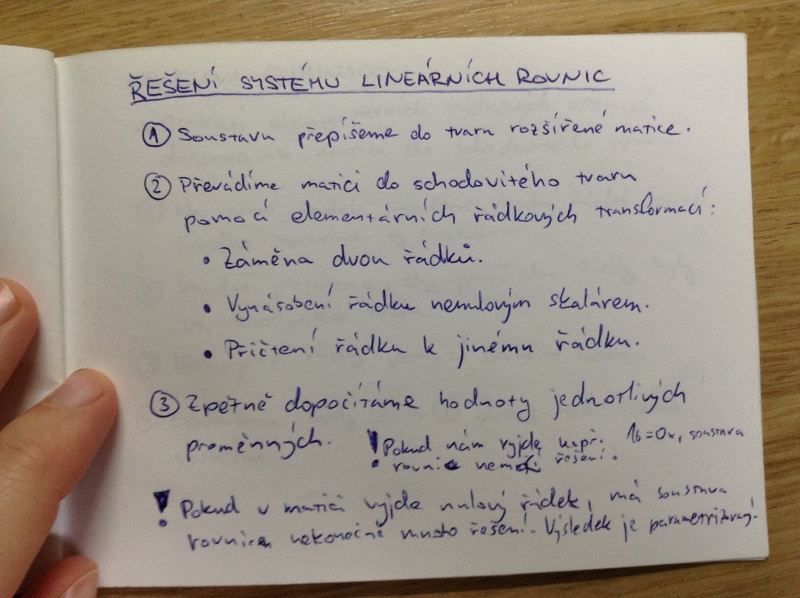 ŘEŠENÍ SYSTÉMU LINEÁRNÍCH ROVNIC
1 Soustavu přepíšeme do tvaru rozšířené matice.
2 Převádíme matici do schodovitého tvaru
pomocí elementárních řádkových transformací:
• Záměna dvou řádků.
• Vynásobení řádku nenulovým skalárem.
• Přičtení řádku k jinému řádku.
3 Zpětně dopočítáme hodnoty jednotlivých
proměnných. ! Pokud nám vyjde např. 16=0x, soustava
rovnic nemá řešení.
! Pokud v matici vyjde nulový řádek, má soustava
rovnic nekonečně mnoho řešení. Výsledek je parametrizovaný!